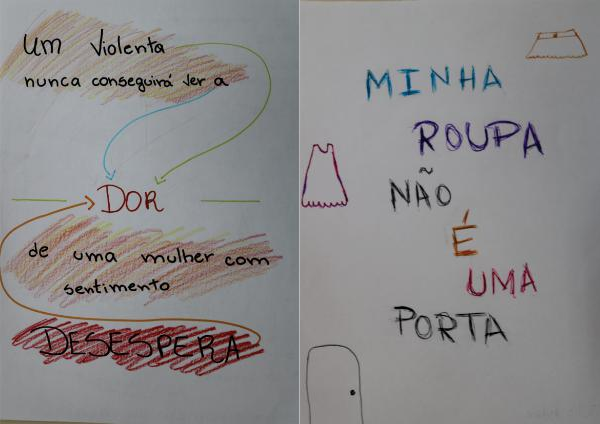 Um Violenta
nunca conseguirá ver a
DOR
de uma mulher com
sentimento
DESESPERA
MINHA
ROUPA
NÃO
É
UMA
PORTA